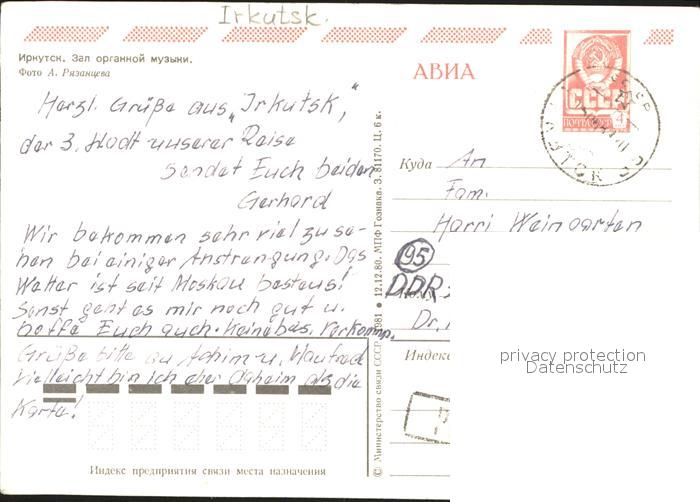 Irkutsk.
Иркутск. Зал органной музыки.
Фото А. Рязанцева
Herzl. Grüße aus „Irkutsk",
der 3. Stadt unserer Reise
sendet Euch beiden
Gerhard
Wir bekommen sehr viel zu se-
hen bei einiger Anstrengung. Das
Wetter ist seit Moskau bestens!
Sonst geht es mir noch gut u.
hoffe Euch auch. Keine bes. Vorkomn.
Grüße bitte an Achim u. Manfred
Vielleicht bin ich eher daheim als die
Karte!
Индекс предприятия связи места назначения
© Министерство связи СССР. 1981 • 12.12.80. МПФ Гознака. З. 81170. Ц. 6 к.
АВИА
СССР
ПОЧТА
4
Куда An
Fam.
Harri Weingarten
95
DDR
Dr.
Индекс
privacy protection
Datenschutz